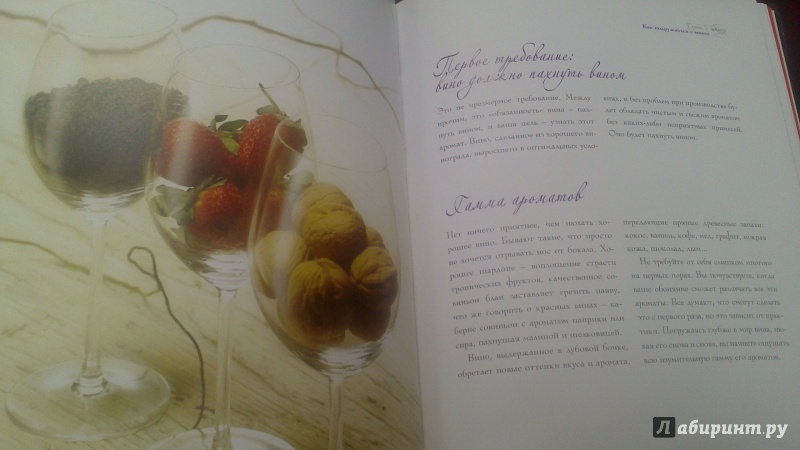 Как подружиться с вином
Первое требование:
вино должно пахнуть вином
Это не чрезмерное требование. Между
прочим, это «обязанность» вина – пах-
нуть вином, и ваша цель – узнать этот
аромат. Вино, сделанное из хорошего ви-
нограда, выросшего в оптимальных усло-
виях, и без проблем при производстве бу-
дет обладать чистым и свежим ароматом,
без каких-либо неприятных примесей.
Оно будет пахнуть вином.
Гамма ароматов
Нет ничего приятнее, чем нюхать хо-
рошее вино. Бывают такие, что просто
не хочется отрывать нос от бокала. Хо-
рошее шардоне – воплощение страсти
тропических фруктов, качественное со-
виньон блан заставляет грезить наяву,
что же говорить о красных винах – ка-
берне совиньон с ароматом паприки или
сира, пахнущая малиной и шелковицей.
Вино, выдержанное в дубовой бочке,
обретает новые оттенки вкуса и аромата,
передающие пряные древесные запахи:
кокос, ваниль, кофе, кедр, графит, мокрая
кожа, шоколад, дым...
Не требуйте от себя слишком многого
на первых порах. Вы почувствуете, когда
ваше обоняние сможет различать все эти
ароматы. Все думают, что смогут сделать
это с первого раза, но это зависит от прак-
тики. Погружаясь глубже в мир вина, ню-
хая его снова и снова, вы начнете ощущать
всю изумительную гамму его ароматов.
Лабиринт.ру